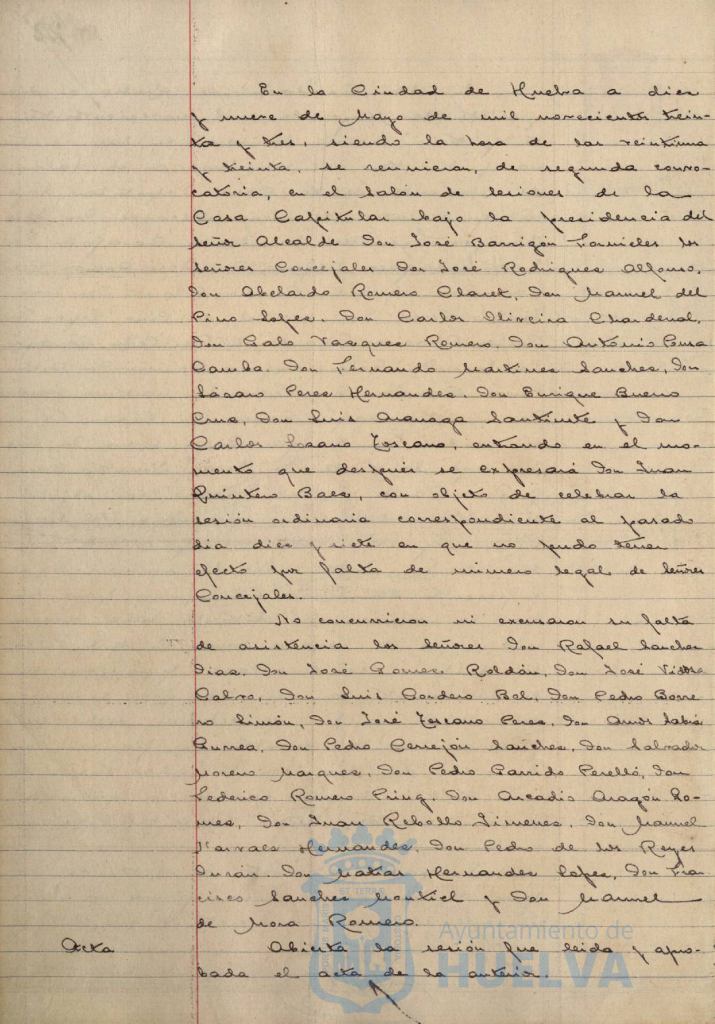 En la Ciudad de Huelva a diez
y nueve de Mayo de mil novecientos trein-
ta y tres, siendo la hora de las veintiuna
y treinta, se reunieron, de segunda convo-
catoria, en el Salón de Sesiones de la
Casa Capitular bajo la presidencia del
Señor Alcalde Don José Barrigón Fornieles los
Señores Concejales Don José Rodriguez Alfonso,
Don Abelardo Romero Claret, Don Manuel del
Pino Lopez, Don Carlos Oliveira Chardenal,
Don Galo Vazquez Romero, Don Antonio
Gamba, Don Fernando Martinez Sanchez, Don
Lázaro Perez Hernandez, Don Enrique Bueno
Cruz, Don Luis y Don
Carlos Lozano Toscano, entrando en el mo-
mento que después se expresará Don Juan
Quintero Baez, con objeto de celebrar la
sesión ordinaria correspondiente al pasado
dia diez y siete en que no pudo tener
efecto por falta de número legal de Señores
Concejales.
No concurrieron ni excusaron su falta
de asistencia los Señores Don Rafael Sanchez
Diaz, Don José Gomez Roldán, Don José
Calvo, Don Luis Cordero Bel, Don Pedro Borre
ro Limón, Don José Toscano Perez, Don Amós Sabrá
Gurrea, Don Pedro Cerrejón Sanchez, Don Salvador
Moreno Marquez, Don Pedro Garrido Perelló, Don
Federico Romero Don Arcadio Aragón Go-
mez, Don Juan Rebollo Jimenez, Don Manuel
Narvaez Hernandez, Don Pedro de los Reyes
Durán, Don Matias Hernandez Lopez, Don Fran
cisco Sanchez Montiel y Don Manuel
de Mora Romero.
Acta
Abierta la sesión fue leida y apro-
bada el acta de la anterior.
Ayuntamiento de
HUELVA